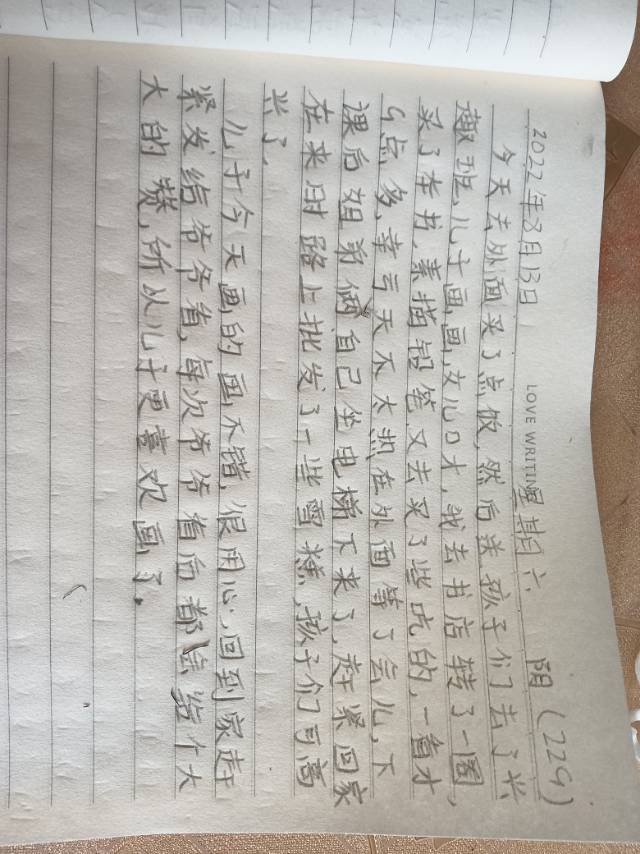 2022年8月13日 LOVE WRITING 星期六 阴 (229)
今天去外面买了点饭,然后送孩子们去了兴
趣班,儿子画画,女儿口才,我去书店转了一圈,
买了本书,素描铅笔又去买了些吃的,一看才
4点多,幸亏天不太热在外面等了会儿,下
课后姐弟俩自己坐电梯下来了,赶紧回家
在来时路上批发了一些雪糕,孩子们可高
兴了.
儿子今天画的画不错,很用心,回到家赶
紧发给爷爷看,每次爷爷看后都会给个大
大的赞,所以儿子更喜欢画了.